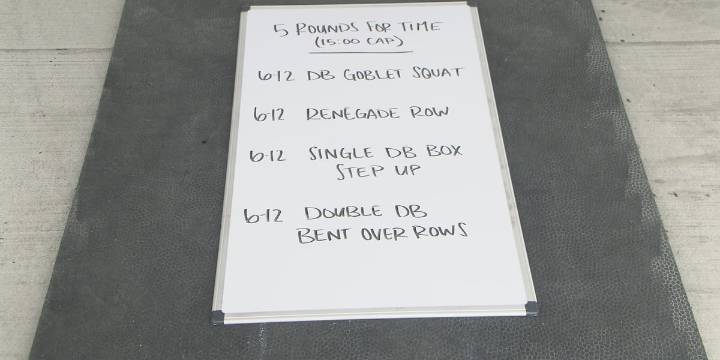 5 ROUNDS FOR TIME
(15:00 CAP)
6-12 DB GOBLET SQUAT
6-12 RENEGADE ROW
6-12 SINGLE DB BOX
STEP UP
6-12 DOUBLE DB
BENT OVER ROWS